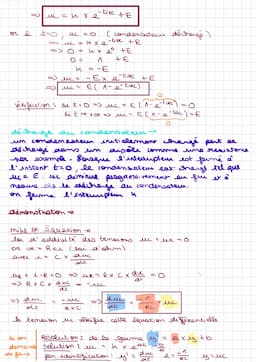 ⇒ uc = K x e^(-t/RC) + E
or à t=0, uc = 0 (condensateur déchargé)
⇒ uc = K x e^(-t/RC) + E
⇒ 0 = K x e^0 + E
0 = K + E
K = -E
⇒ uc = -E x e^(-t/RC) + E
⇒ uc = E(1-e^(-t/RC))
vérification: si t=0 ⇒ uc = E(1-e^(-0/RC)) = 0
si t → +∞ ⇒ uc = E(1-e^(-∞)) = E
décharge du condensateur →
un condensateur initialement chargé peut se
décharger dans un dipôle comme une résistance
par exemple. Lorsque l'interrupteur est fermé à
l'instant t=0, le condensateur est chargé tel que
uc = E se diminue progressivement au fur et à
mesure de la décharge du condensateur.
on ferme l'interrupteur K
démonstration →
mise en équation →
loi d'additivité des tensions uc + uR = 0
or uR = R x i (loi d'ohm)
avec i = C x duc/dt
uc + R x i = 0 ⇒ uc + R x C x duc/dt = 0
⇒ R x C x duc/dt = -uc
⇒ duc/dt = -uc/RxC ⇒ duc/dt = -1/RC x uc
la tension uc vérifie cette équation différentielle
Résolution: de la forme y' = a x y + b
Solution: u
par identification: y' = duc/dt a = -1/RC y = uc